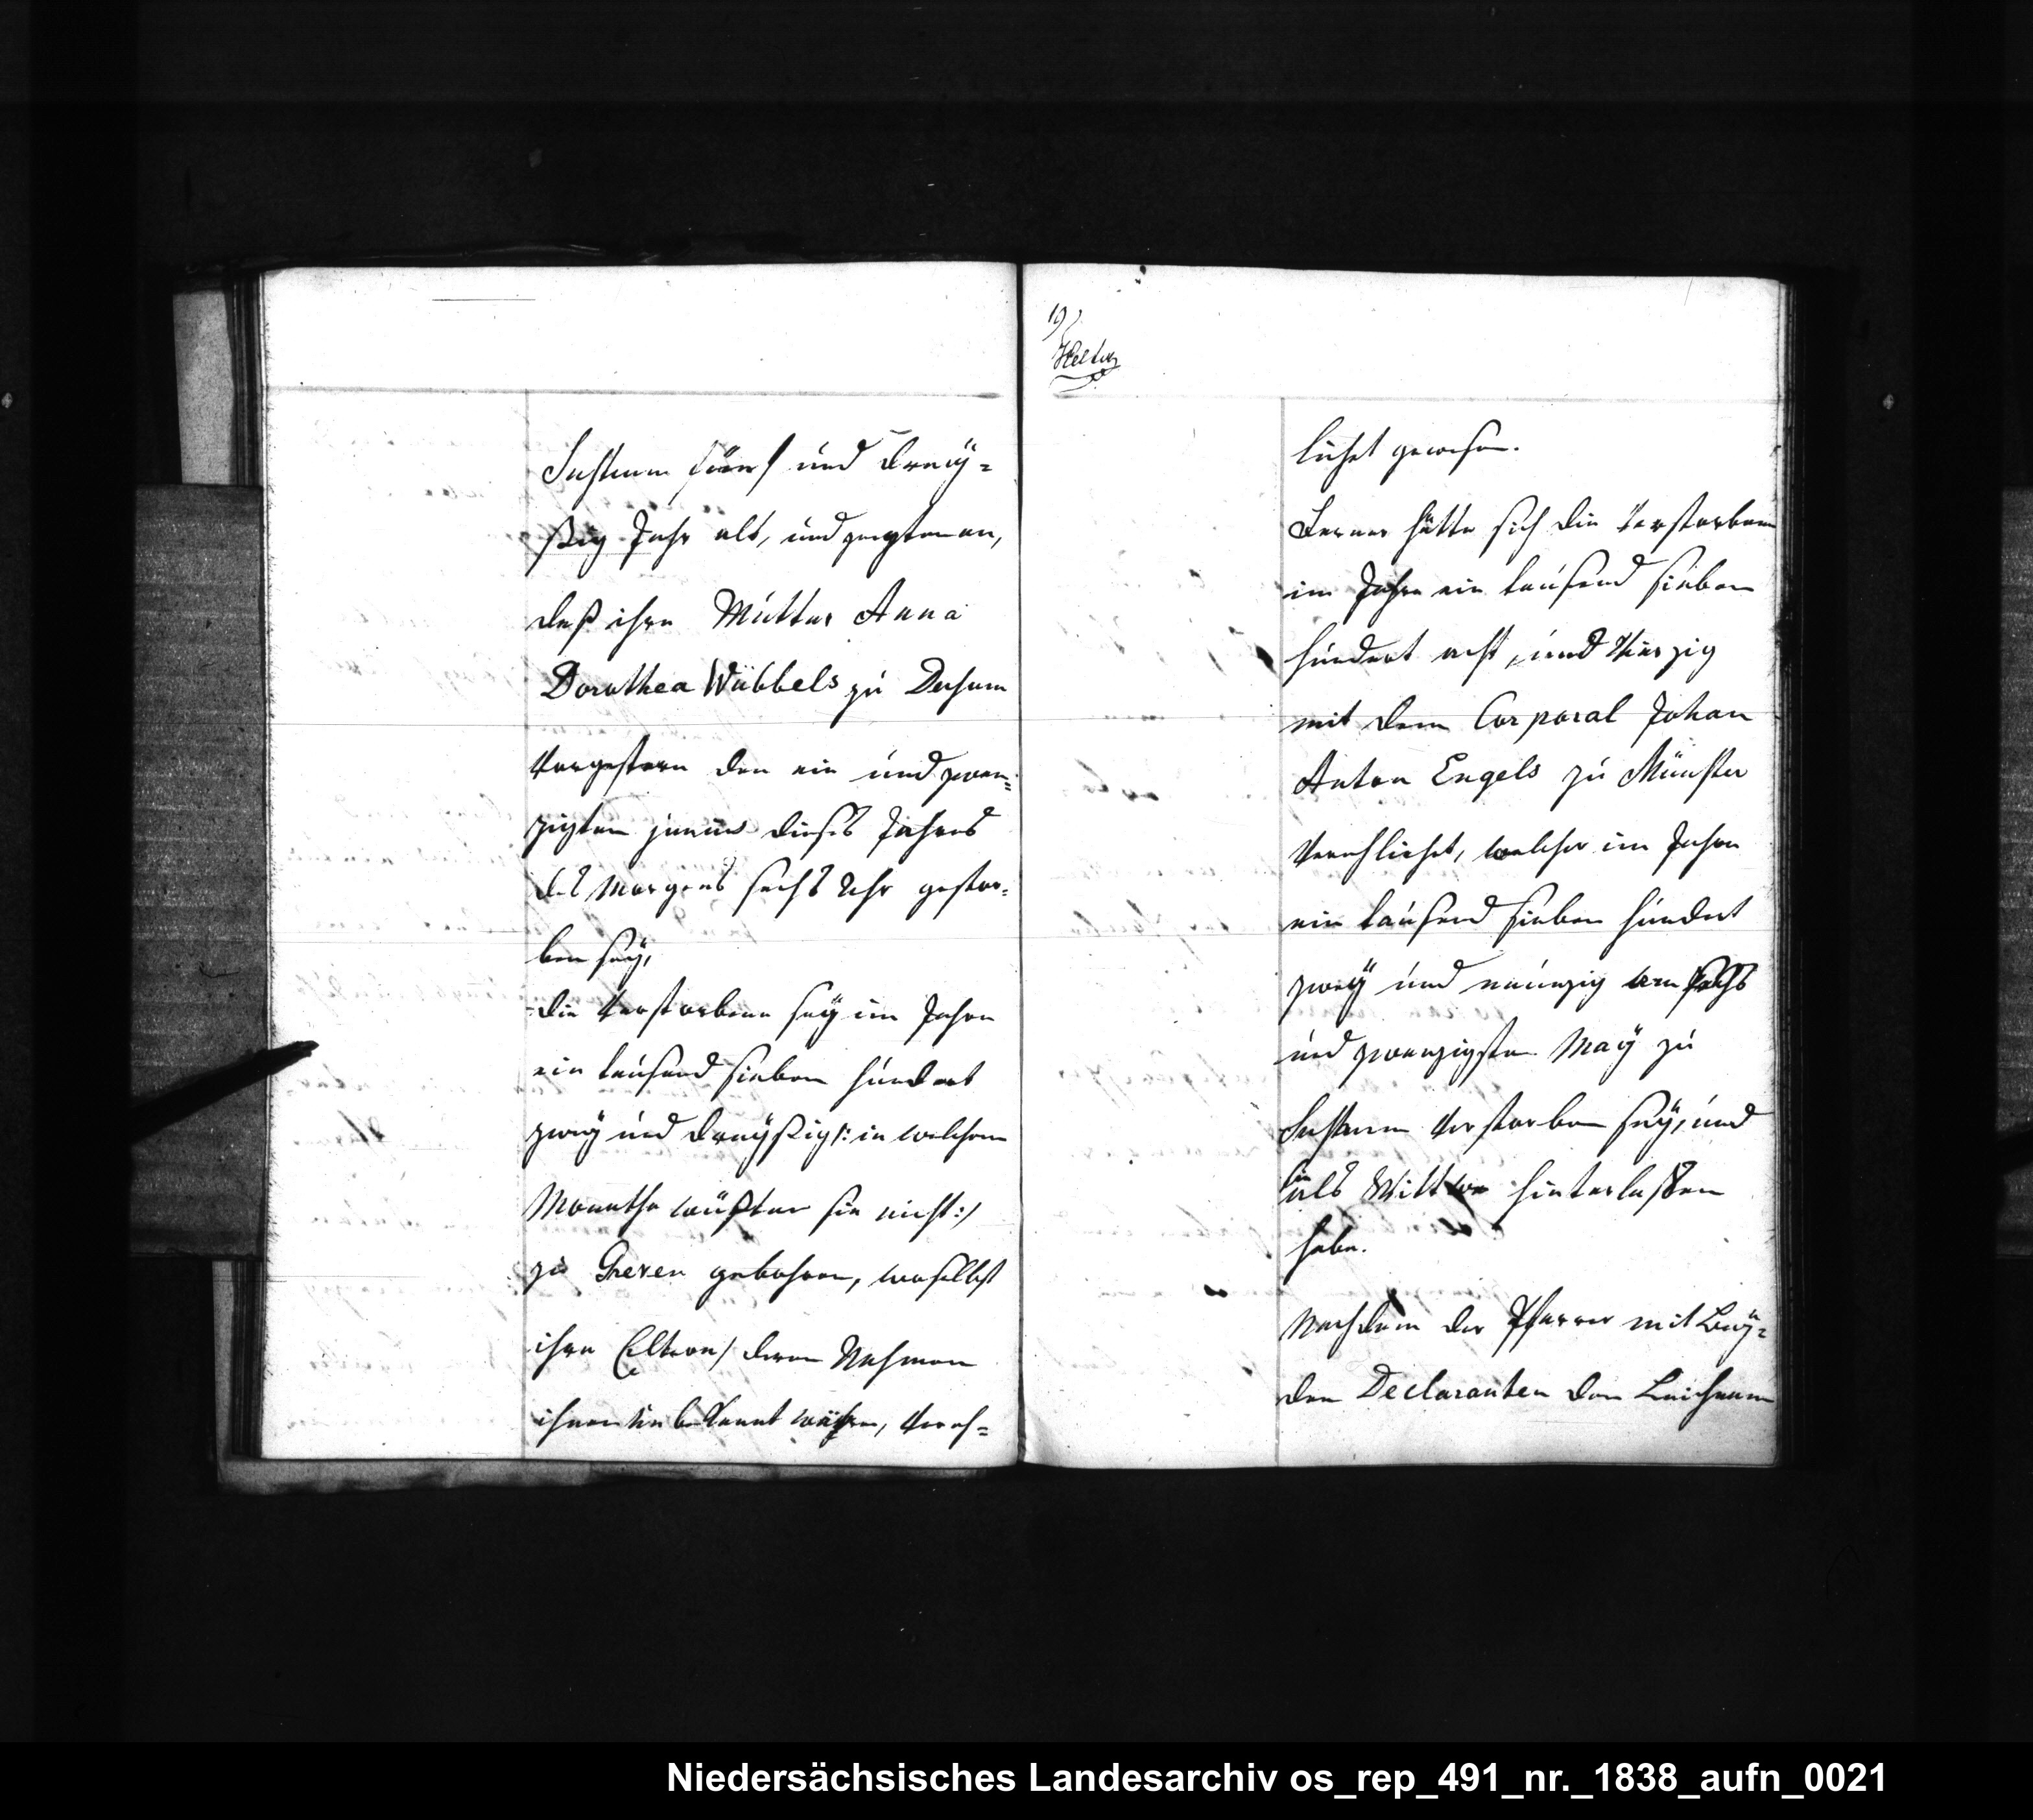 Sustrum fünf und drey=
ßig Jahr alt, und zeigten an,
daß ihre Mutter Anna
Dorothea Wübbels zu Dersum
vorgestern den ein und zwan=
zigten junius dieses Jahres
des Morgens sechs Uhr gestor=
ben sey,
die Verstorbene sey im Jahre
ein tausend sieben hundert
zwey und dreyßig /: in welchem
Monathe wüßten sie nicht :/
zu Greven gebohren, woselbst
ihre Eltern / deren Nahmen
ihnen unbekannt wären, vereh=
19)
lichet gewesen.
Ferner hätte sich die Verstorbene
im Jahre ein tausend sieben
hundert acht und vierzig
mit dem Corporal Johan
Anton Engels zu Münster
verehlichet, welcher im Jahre
ein tausend sieben hundert
zwey und neunzig am sechs
und zwanzigsten May zu
Sustrum verstorben sey, und
sie
als Wittwe hinterlaßen
habe.
Nachdem der Pfarrer mit bey=
den Declaranten den Leichnam
Niedersächsisches Landesarchiv os_rep_491_nr._1838_aufn_0021